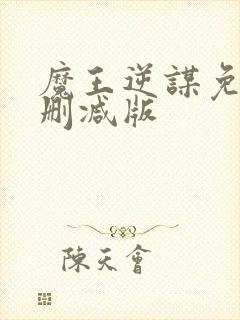 魔王逆謀免
刪減版
陳天會